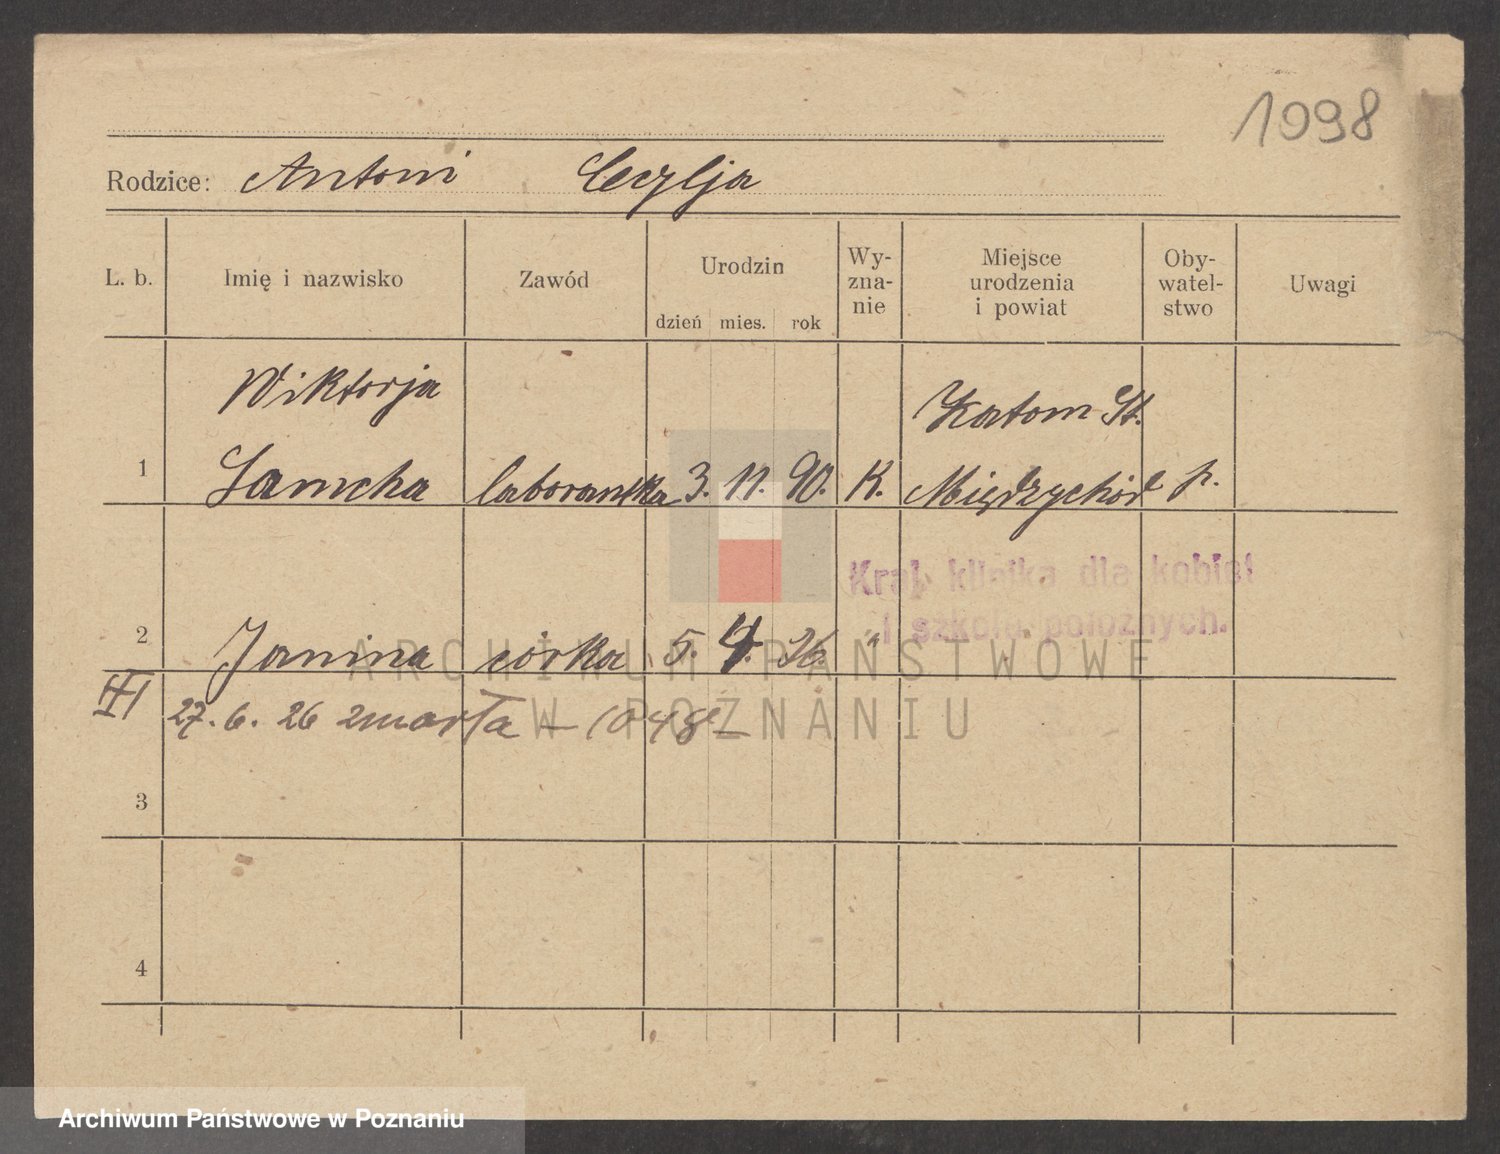 1098
Rodzice: Antoni Cecylja
L. b. Imię i nazwisko Zawód Urodzin dzień mies. rok Wy-zna-nie Miejsce urodzenia i powiat Oby-watel-stwo Uwagi
Wiktorja Katom St.
1 Samcha laborantka 3. 11. 90. K. Międzychód p.
Kraj. klinika dla kobiet
i szkoła położnych.
2 Janina córka 5. 4. 26. "
ARCHIWUM PAŃSTWOWE
W POZNANIU
III 27. 6. 26 zmarła — 1048 —
3
4
Archiwum Państwowe w Poznaniu